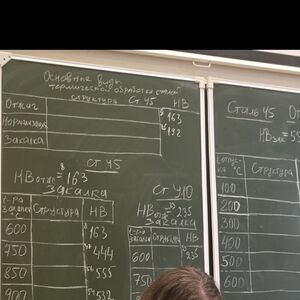 Основные виды
термической обработки сталей
структура Ст 45 HB
Отжиг 163
Нормализация 192
Закалка
Ст 45
HB отж = 163
Закалка
t-ра закалки Структура HB
600 163
750 444
850 555
900 532
Ст У10
HB отж = 235
Закалка
t-ра закалки Структура HB
600 235
750
Сталь 45
HB зак = 55
t отпус- °C Структура
100
200
300
400
500
600